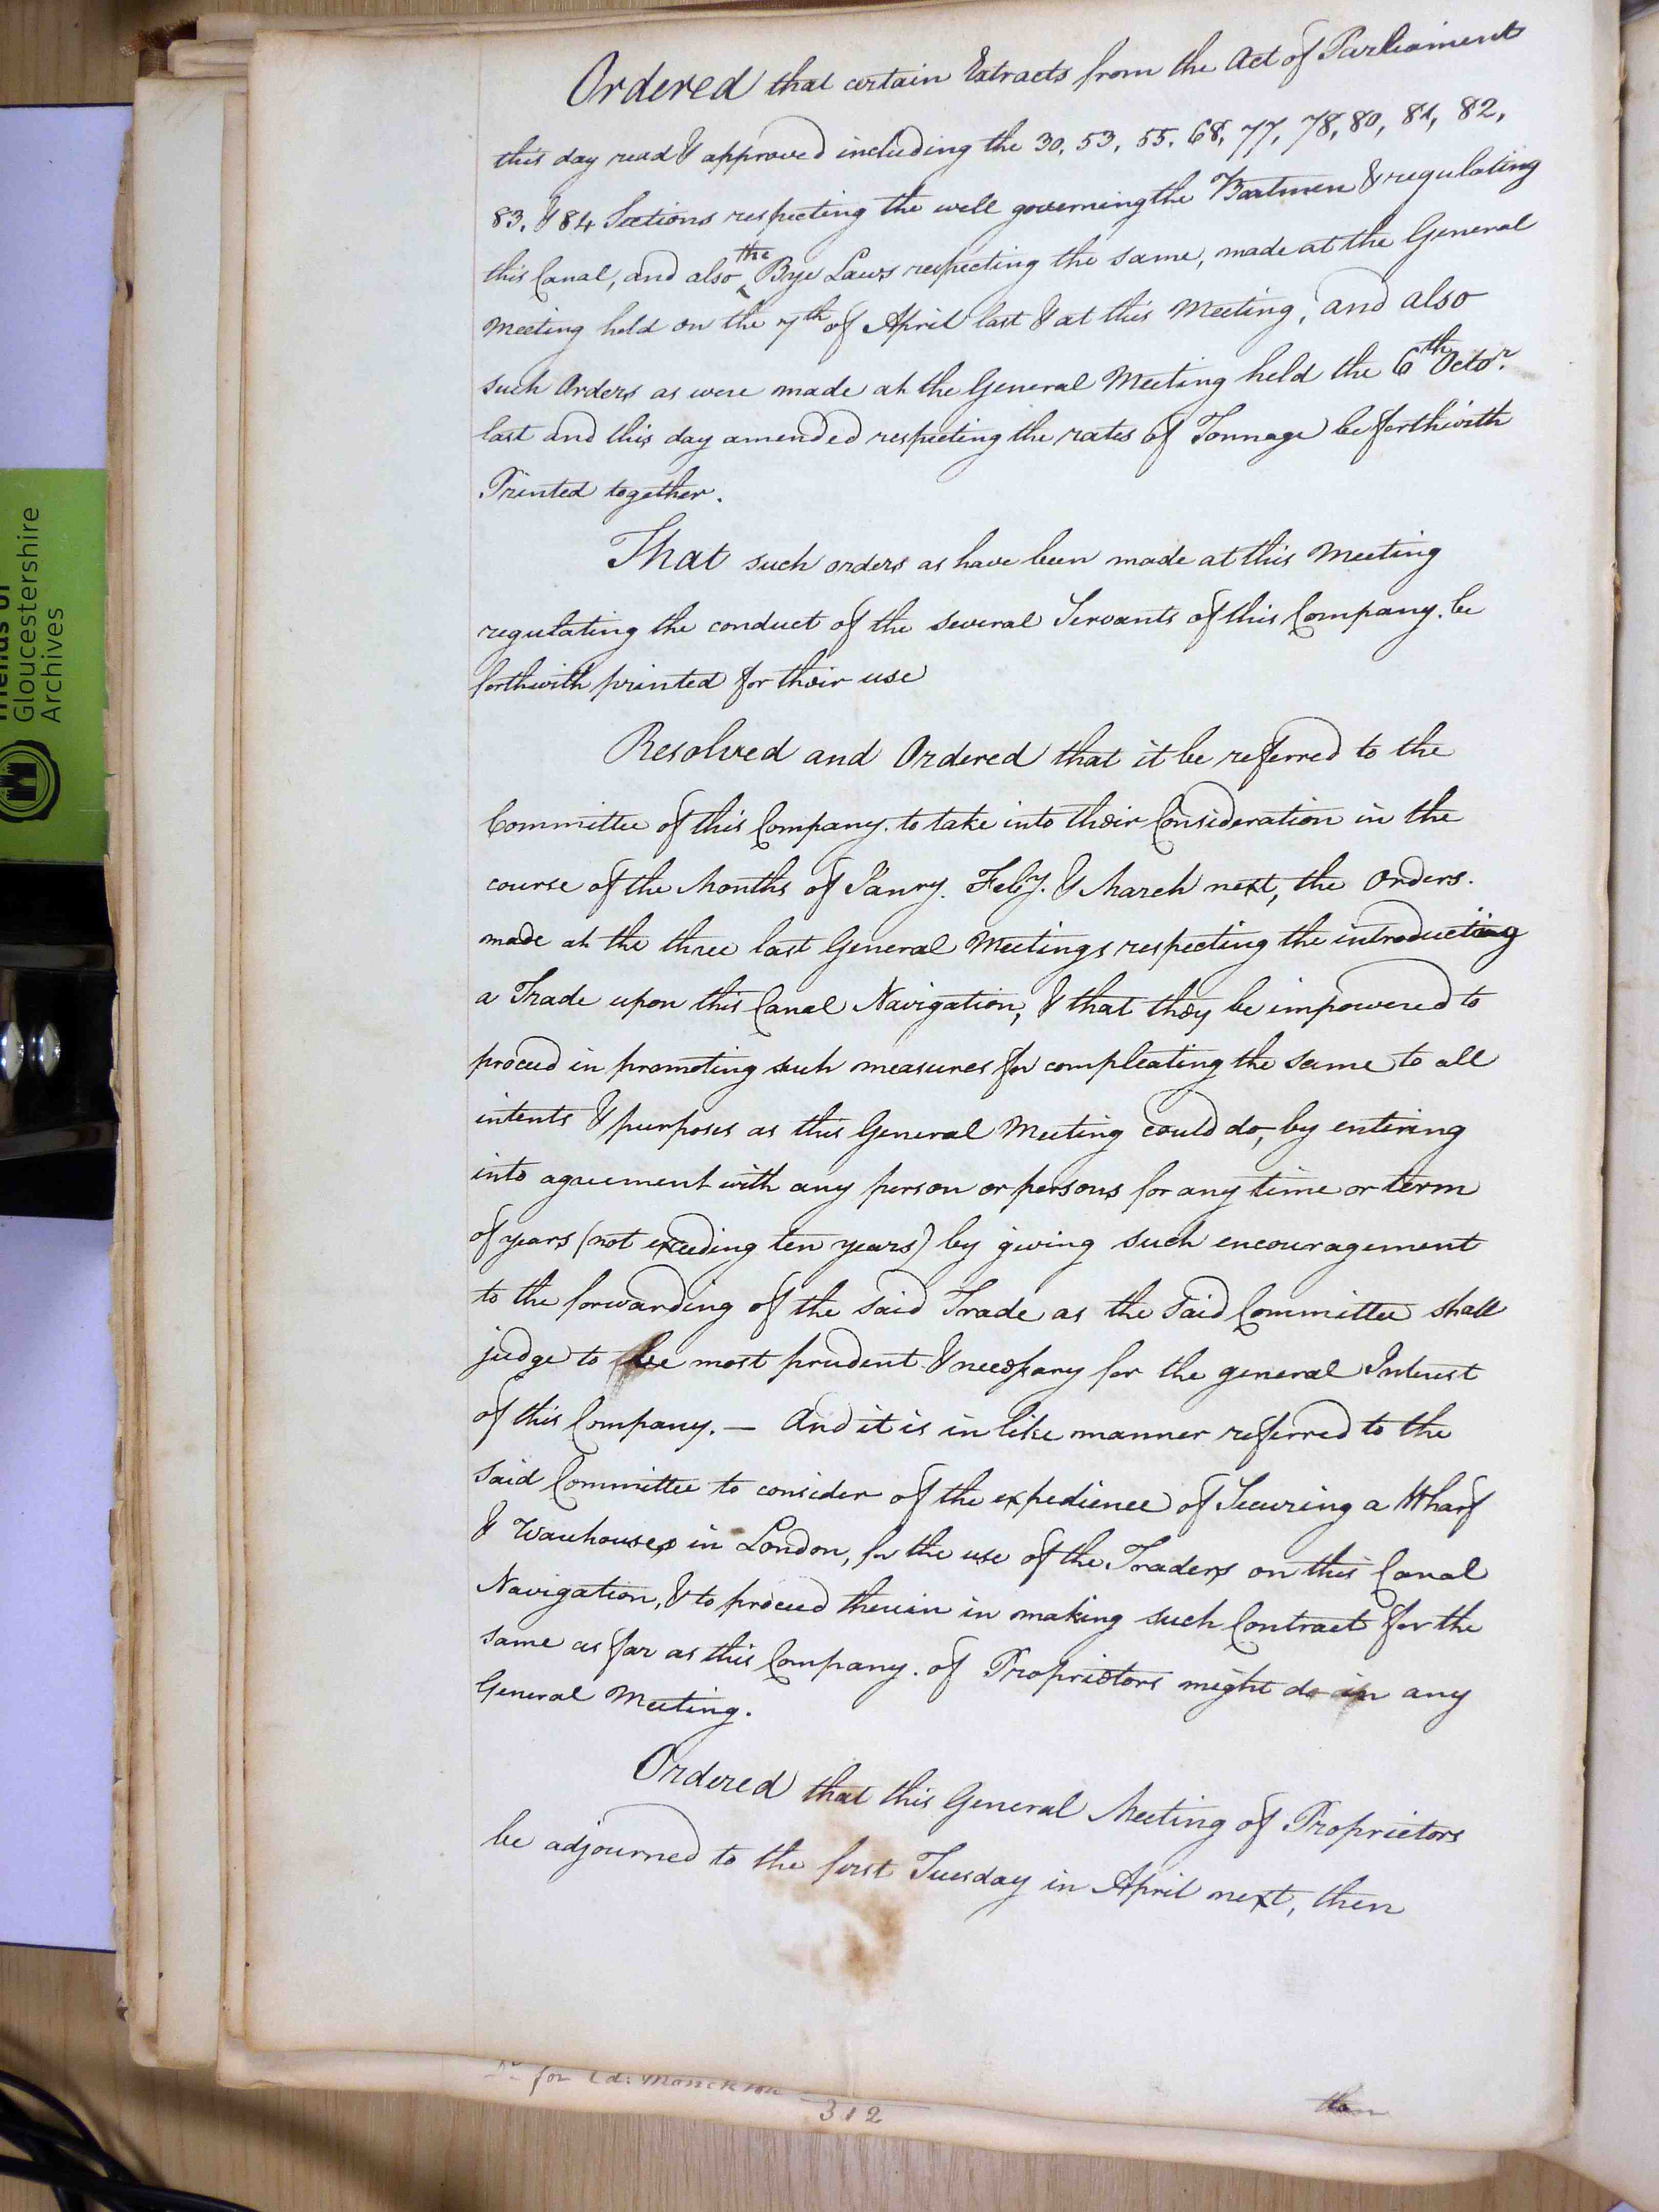 Ordered that certain Extracts from the Act of Parliament
this day read & approved including the 30, 53, 55, 68, 77, 78, 80, 81, 82,
83, & 84 Sections respecting the well governing the Boatmen & regulating
this Canal, and also the Bye Laws respecting the same, made at the General
Meeting held on the 7th of April last & at this Meeting, and also
such Orders as were made at the General Meeting held the 6th Octor.
last and this day amended respecting the rates of Tonnage be forthwith
Printed together.
That such orders as have been made at this Meeting
regulating the conduct of the several Servants of this Company. be
forthwith printed for their use
Resolved and Ordered that it be referred to the
Committee of this Company. to take into their Consideration in the
course of the Months of Janry. Feby. & March next, the Orders.
made at the three last General Meetings respecting the introducting
a Trade upon this Canal Navigation, & that they be impowered to
proceed in promoting such measures for compleating the same to all
intents & purposes as this General Meeting could do, by entering
into agreement with any person or persons for any time or term
of years (not exceeding ten years) by giving such encouragement
to the forwarding of the said Trade as the said Committee shall
judge to be most prudent & necessary for the general Interest
of this Company. — And it is in like manner referred to the
said Committee to consider of the expedience of Securing a Wharf
& Warehouses in London, for the use of the Traders on this Canal
Navigation, & to proceed therein in making such Contract for the
same as far as this Company. of Proprietors might do in any
General Meeting.
Ordered that this General Meeting of Proprietors
be adjourned to the first Tuesday in April next, then
then
for Ed: Monckton
312
Friends of
Gloucestershire
Archives